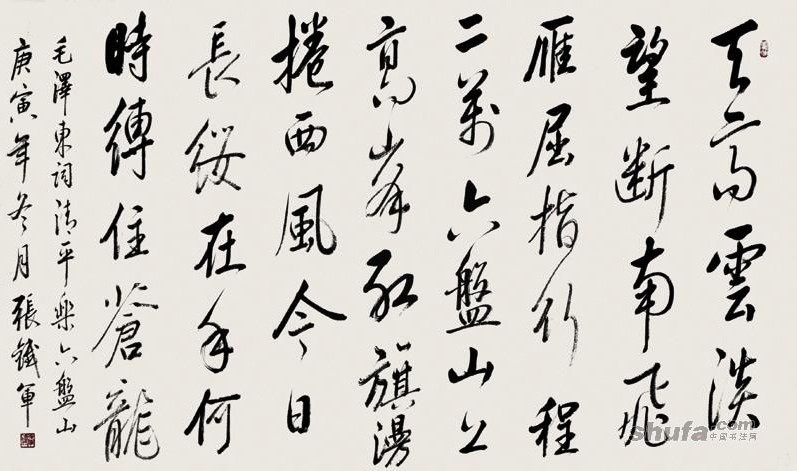 天高雲淡
望断南飛
雁屈指行程
二萬六盤山上
高峰紅旗漫
捲西風今日
長纓在手何
時縛住蒼龍
毛澤東詞清平樂六盤山
庚寅年冬月張鐵軍
shufa.com
中国书法网